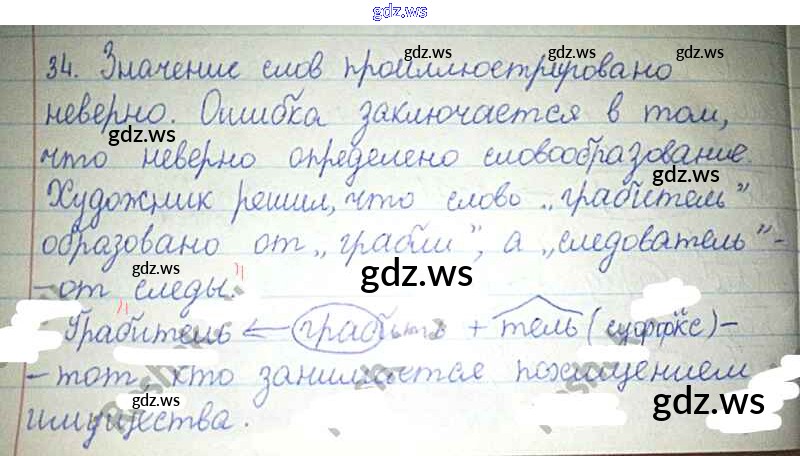 gdz.ws
34. Значение слов проиллюстрировано
неверно. Ошибка заключается в том,
что неверно определено словообразование.
Художник решил, что слово „грабитель"
образовано от „грабли", а „следователь"-
-от следы."
"Грабитель ← грабить + тель (суффикс)-
-тот, кто занимается похищением
имущества.
gdz.ws
gdz.ws
gdz.ws
gdz.ws
gdz.ws
gdz.ws
gdz.ws